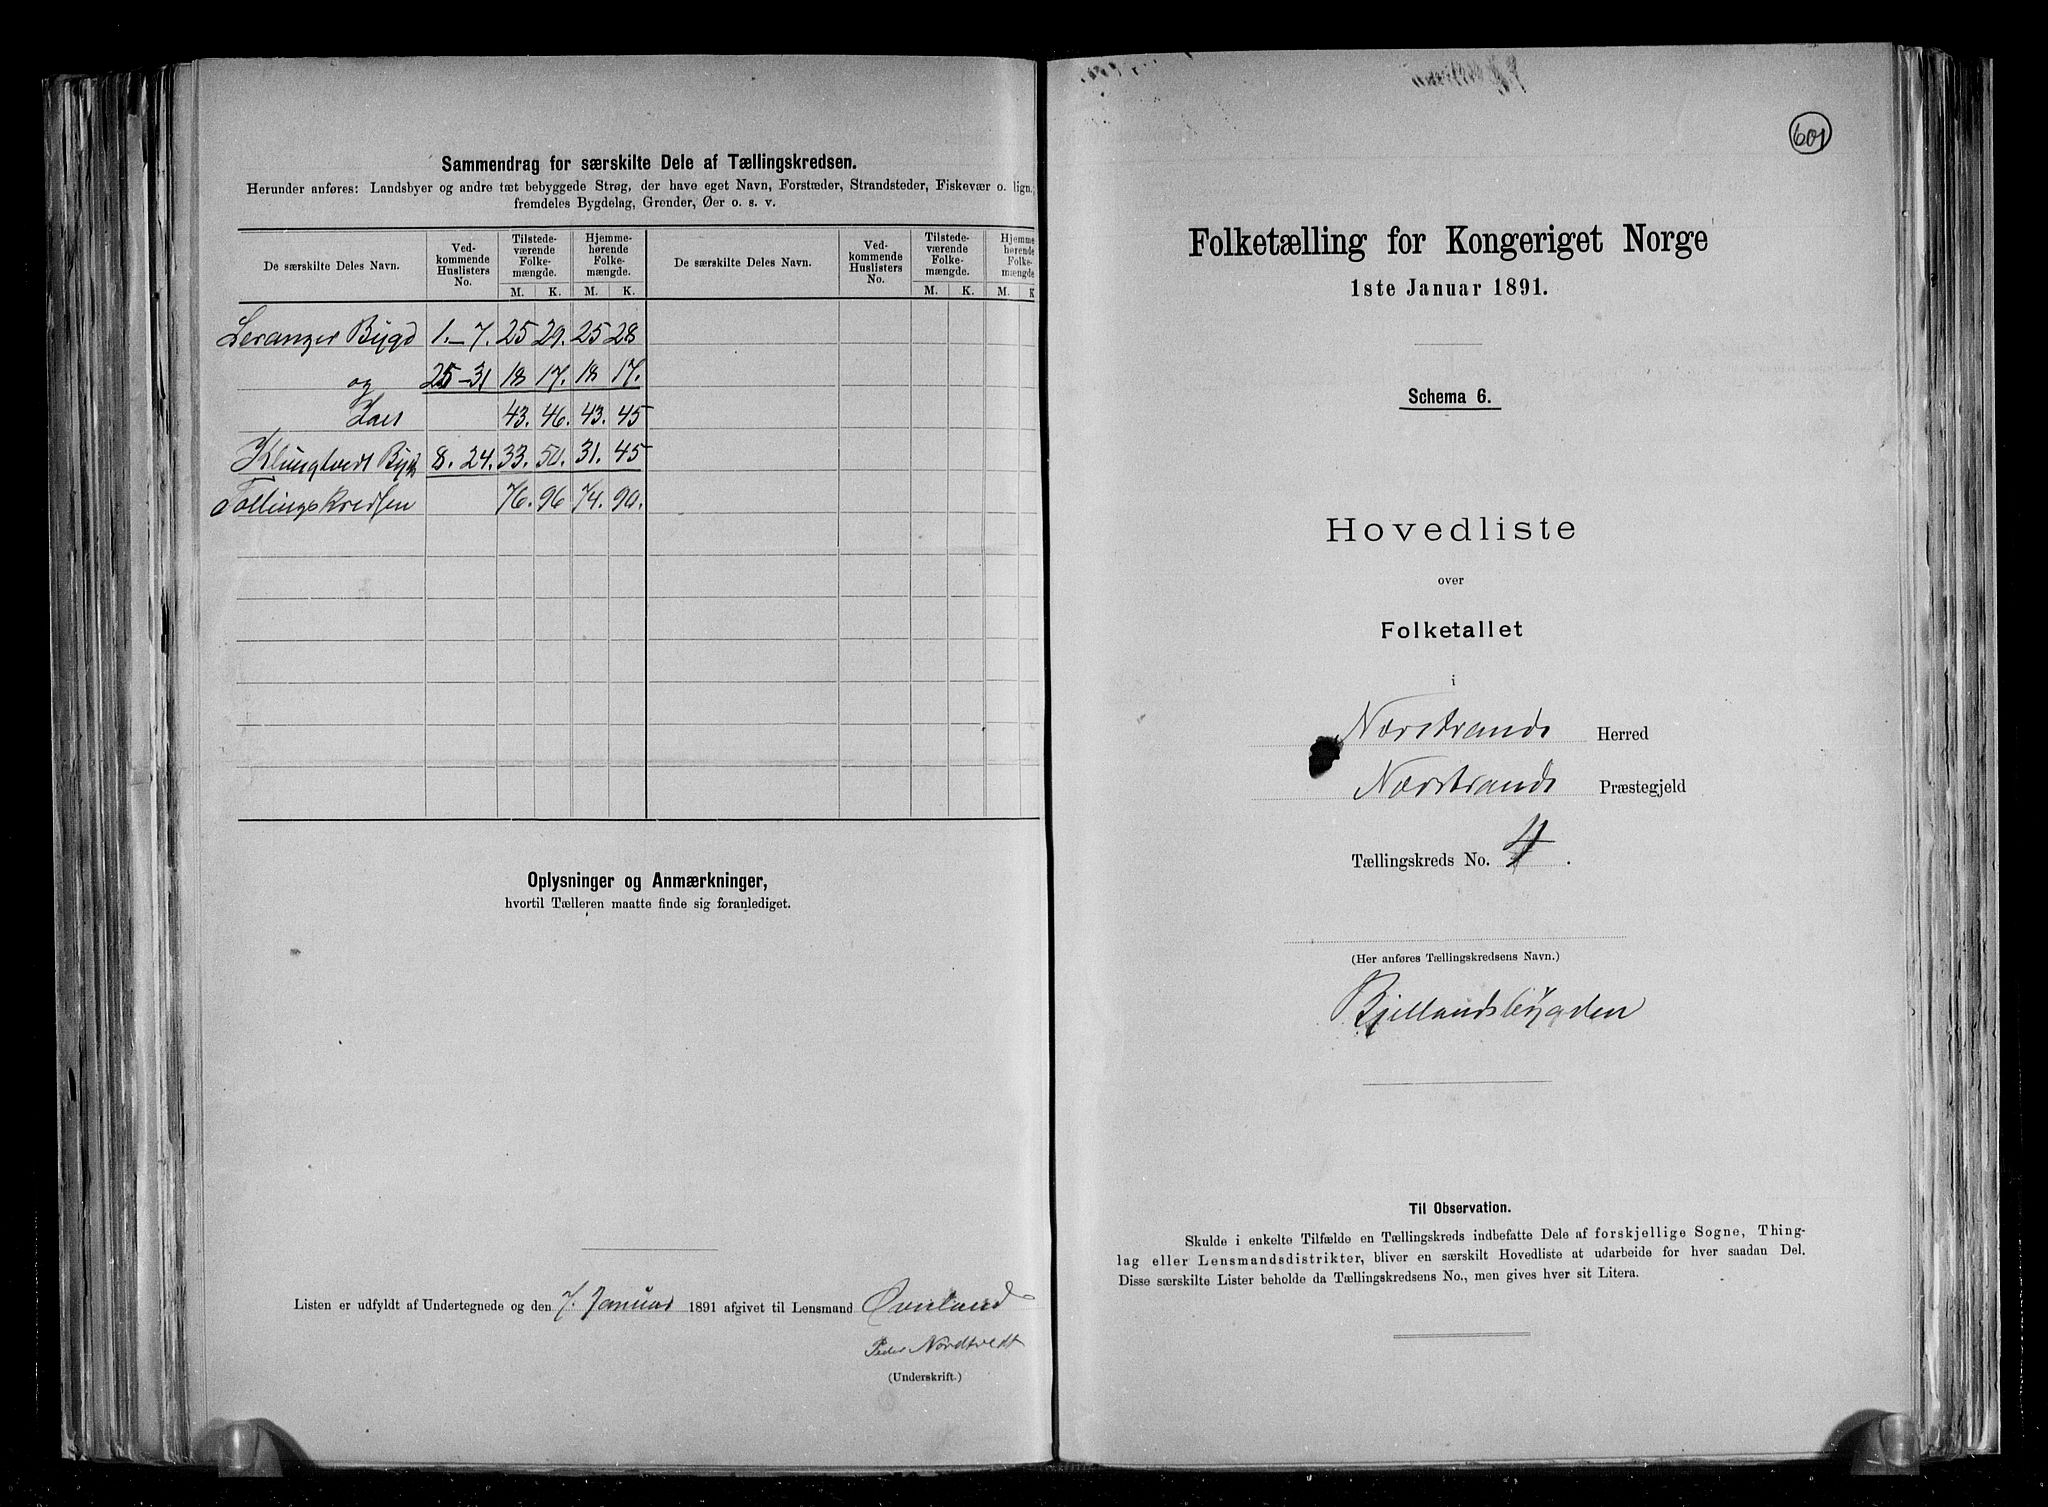 Sammendrag for særskilte Dele af Tællingskredsen.
Herunder anføres: Landsbyer og andre tæt bebyggede Strøg, der have eget Navn, Forstæder, Strandsteder, Fiskevær o. lign.;
fremdeles Bygdelag, Grender, Øer o. s. v.
De særskilte Deles Navn. Ved-kommende Huslisters No. Tilstede-værende Folke-mængde. Hjemme-hørende Folke-mængde. De særskilte Deles Navn. Ved-kommende Huslisters No. Tilstede-værende Folke-mængde. Hjemme hørende Folke-mængde
M. K. M. K. M. K. M. K
Leranger Bygd 1.-7. 25 29. 25 28
og 25-31 18 17. 18 17.
43. 46. 43. 45
Klungtvedt 8. 24. 33. 50. 31. 45
Tællingskredsen 76. 96 74. 90.
Oplysninger og Anmærkninger,
hvortil Tælleren maatte finde sig foranlediget.
Listen er udfyldt af Undertegnede og den 7. Januar 1891 afgivet til Lensmand
Peder Nordtvedt
(Underskrift.)
601
Folketælling for Kongeriget Norge
1ste Januar 1891.
Schema 6.
Hovedliste
over
Folketallet
i
Nærstrands Herred
Nærstrands Præstegjeld
Tællingskreds No. 4.
(Her anføres Tællingskredsens Navn.)
Bjellandsbygden
Til Observation.
Skulde i enkelte Tilfælde en Tællingskreds indbefatte Dele af forskjellige Sogne, Thing-
lag eller Lensmandsdistrikter, bliver en særskilt Hovedliste at udarbeide for hver saadan Del.
Disse særskilte Lister beholde da Tællingskredsens No., men gives hver sit Litera.